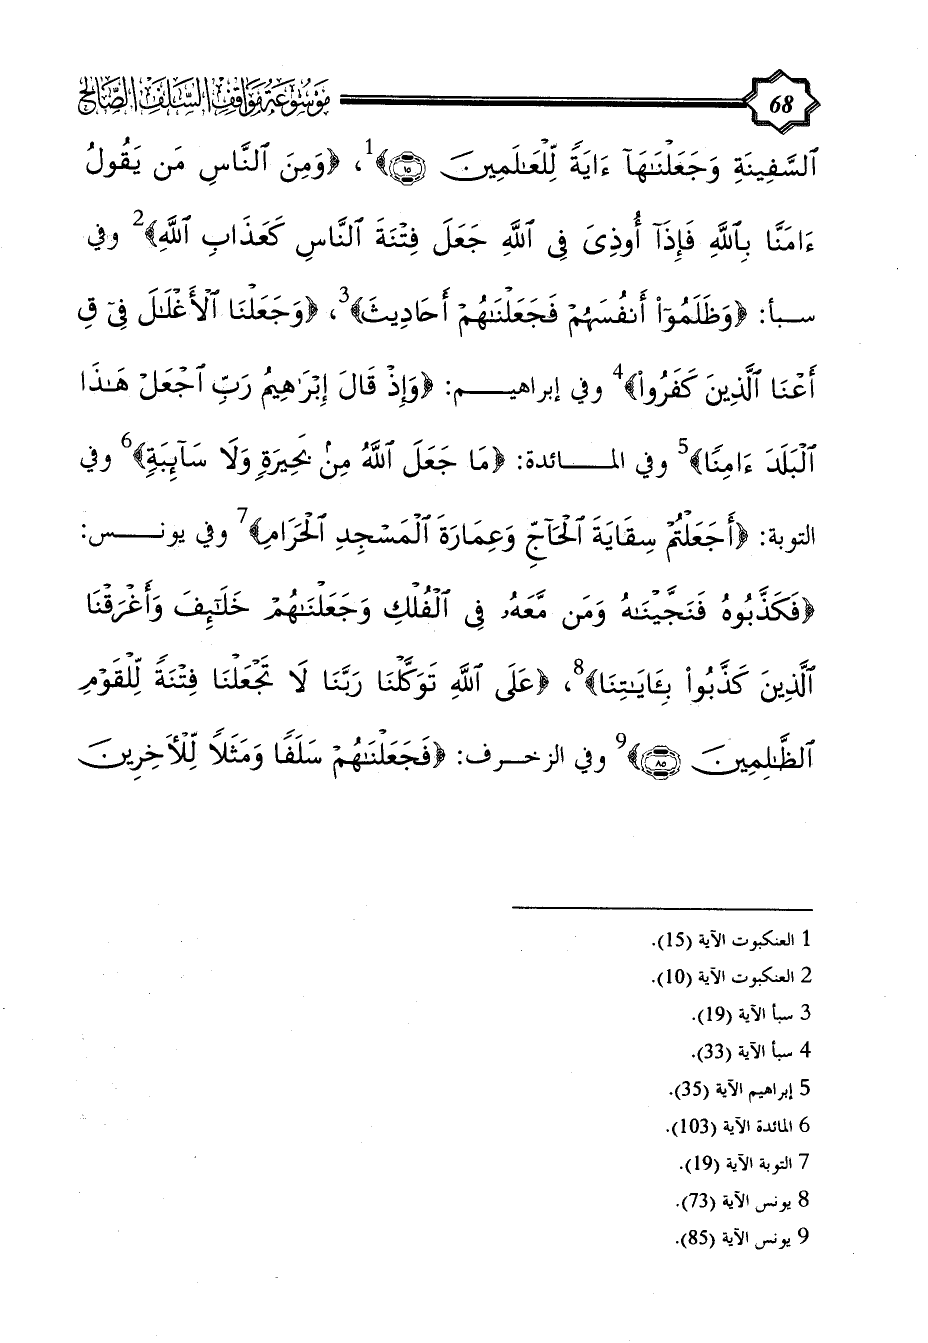 68 موسوعة مواقف السلف الصالح
ٱلسَّفِينَةِ وَجَعَلْنَٰهَآ ءَايَةً لِّلْعَٰلَمِينَ ١٥﴾1، ﴿وَمِنَ ٱلنَّاسِ مَن يَقُولُ
ءَامَنَّا بِٱللَّهِ فَإِذَآ أُوذِىَ فِى ٱللَّهِ جَعَلَ فِتْنَةَ ٱلنَّاسِ كَعَذَابِ ٱللَّهِ﴾2 وفي
سبأ: ﴿وَظَلَمُوٓا۟ أَنفُسَهُمْ فَجَعَلْنَٰهُمْ أَحَادِيثَ﴾3، ﴿وَجَعَلْنَا ٱلْأَغْلَٰلَ فِىٓ قِ
أَعْنَا ٱلَّذِينَ كَفَرُوا۟﴾4 وفي إبراهيم: ﴿وَإِذْ قَالَ إِبْرَٰهِيمُ رَبِّ ٱجْعَلْ هَٰذَا
ٱلْبَلَدَ ءَامِنًا﴾5 وفي المائدة: ﴿مَا جَعَلَ ٱللَّهُ مِنۢ بَحِيرَةٍ وَلَا سَآئِبَةٍ﴾6 وفي
التوبة: ﴿أَجَعَلْتُمْ سِقَايَةَ ٱلْحَآجِّ وَعِمَارَةَ ٱلْمَسْجِدِ ٱلْحَرَامِ﴾7 وفي يونس:
﴿فَكَذَّبُوهُ فَنَجَّيْنَٰهُ وَمَن مَّعَهُۥ فِى ٱلْفُلْكِ وَجَعَلْنَٰهُمْ خَلَٰٓئِفَ وَأَغْرَقْنَا
ٱلَّذِينَ كَذَّبُوا۟ بِـَٔايَٰتِنَا﴾8، ﴿عَلَى ٱللَّهِ تَوَكَّلْنَا رَبَّنَا لَا تَجْعَلْنَا فِتْنَةً لِّلْقَوْمِ
ٱلظَّٰلِمِينَ ٨٥﴾9 وفي الزخرف: ﴿فَجَعَلْنَٰهُمْ سَلَفًا وَمَثَلًا لِّلْأَخِرِينَ
1 العنكبوت الآية (15).
2 العنكبوت الآية (10).
3 سبأ الآية (19).
4 سبأ الآية (33).
5 إبراهيم الآية (35).
6 المائدة الآية (103).
7 التوبة الآية (19).
8 يونس الآية (73).
9 يونس الآية (85).